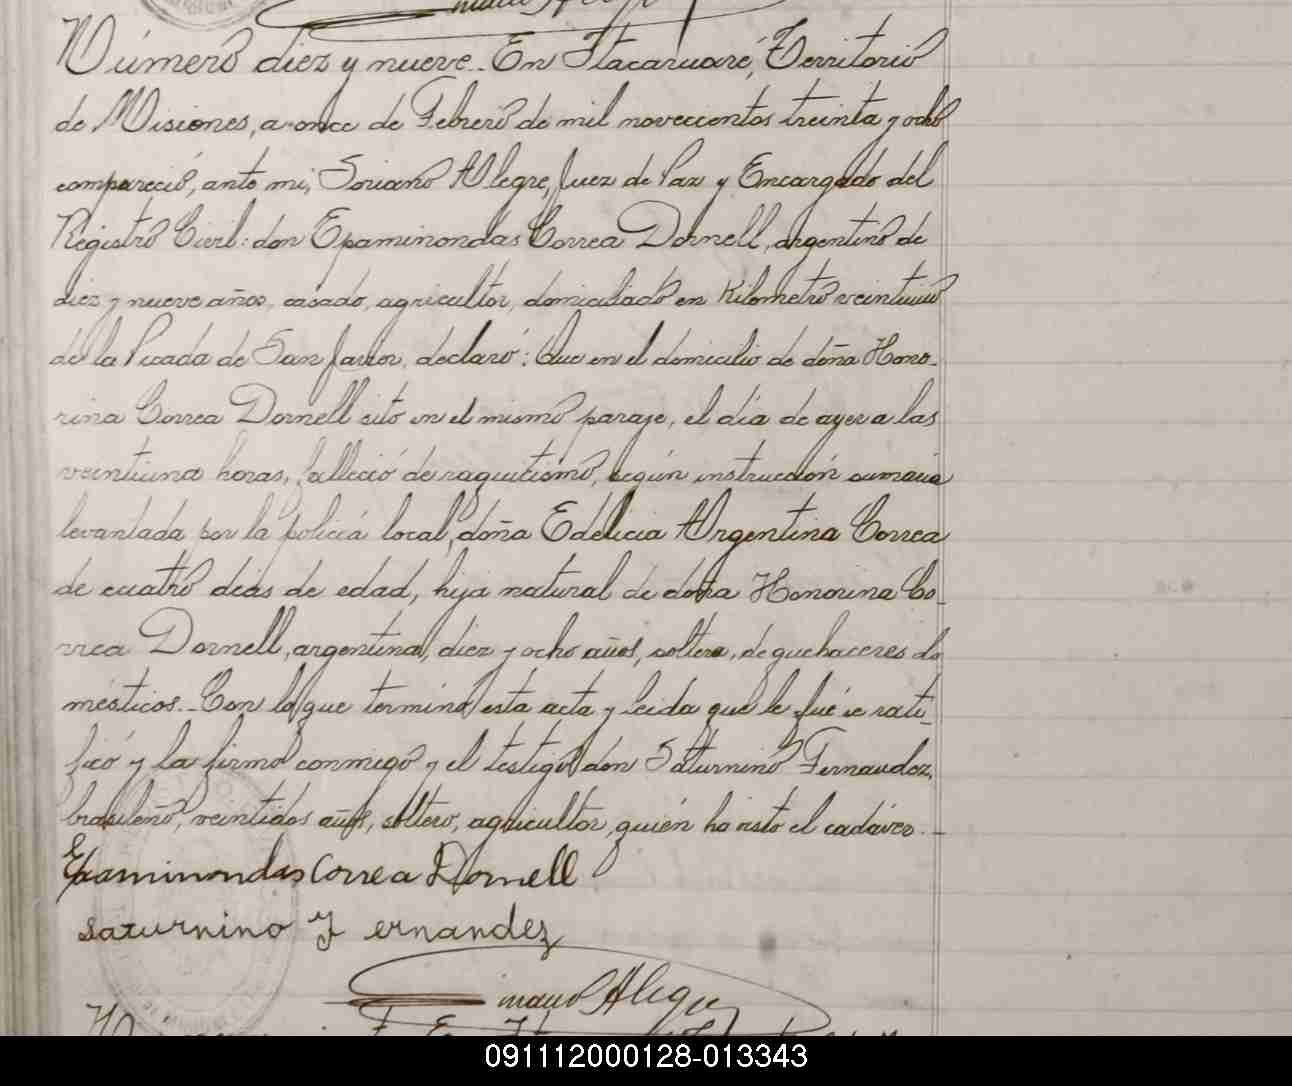 Número diez y nueve.. En Itacaruaré, Territorio
de Misiones, a once de Febrero de mil novecientos treinta y ocho
compareció, ante mi, Soriano Alegre, Juez de Paz y Encargado del
Registro Civil: don Epaminondas Correa Dornell, argentino de
diez y nueve años, casado, agricultor, domiciliado en Kilometro veintiuno
de la Picada de San Javier, declaró: Que en el domicilio de doña Hono-
rina Correa Dornell sito en el mismo paraje, el día de ayer a las
veintiuna horas, falleció de raquitismo, según instrucción sumaria
levantada por la policiá local, doña Edelicia Argentina Correa
de cuatro dias de edad, hija natural de doña Honorina Co-
rrea Dornell, argentina, diez y ocho años, soltera, de quehaceres do
mésticos.. Con lo que terminó esta acta y leida que le fué se rati-
ficó y la firmó conmigo y el testigo don Saturnino Fernandez,
brasileño, veintidos años, soltero, agricultor, quién ha visto el cadáver.-
Epaminondas Correa Dornell
saturnino Fernandez
Alegre
091112000128-013343